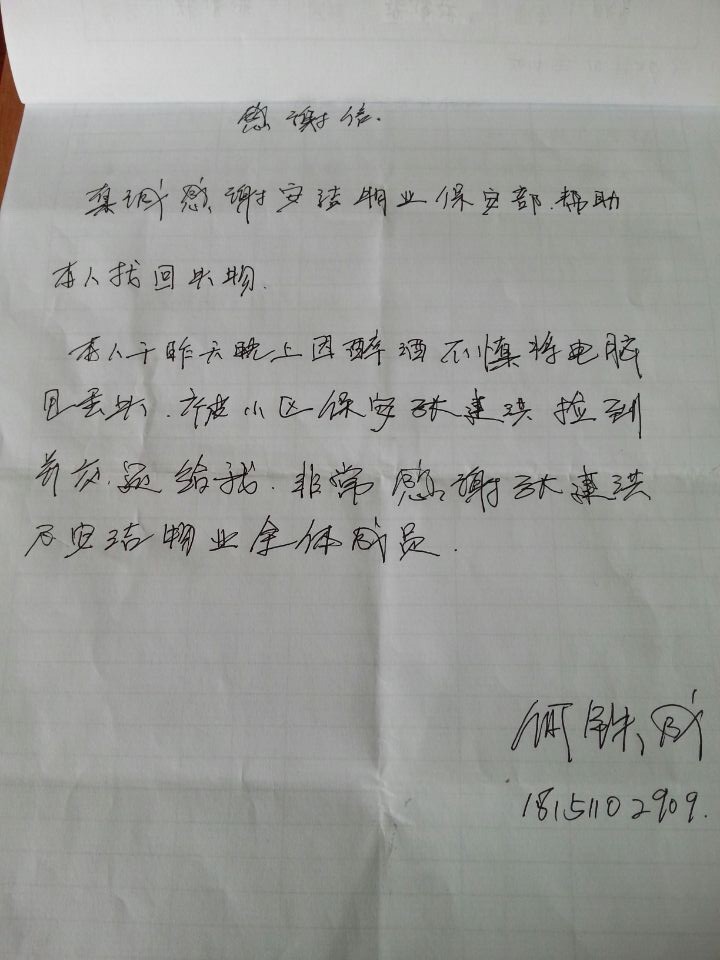 感谢信.
真诚感谢安洁物业保安部.帮助
本人找回失物.
本人于昨天晚上因醉酒不慎将电脑
包丢失.幸被小区保安张建洪捡到
并交还给我.非常感谢张建洪
及安洁物业全体成员.
何铁成
18151102909.